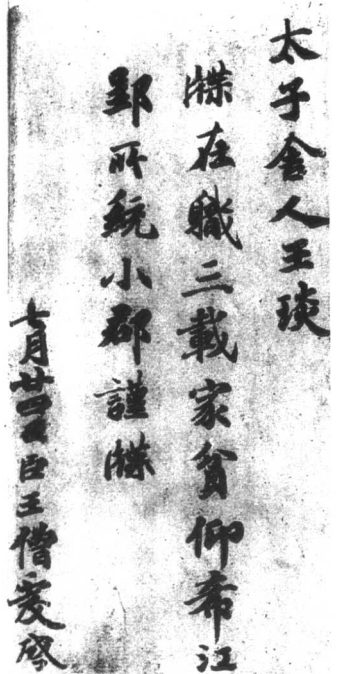 太子舍人王琰
牒在職三載家貧仰希江
郢所統小郡謹牒
七月廿四日臣王僧虔啓